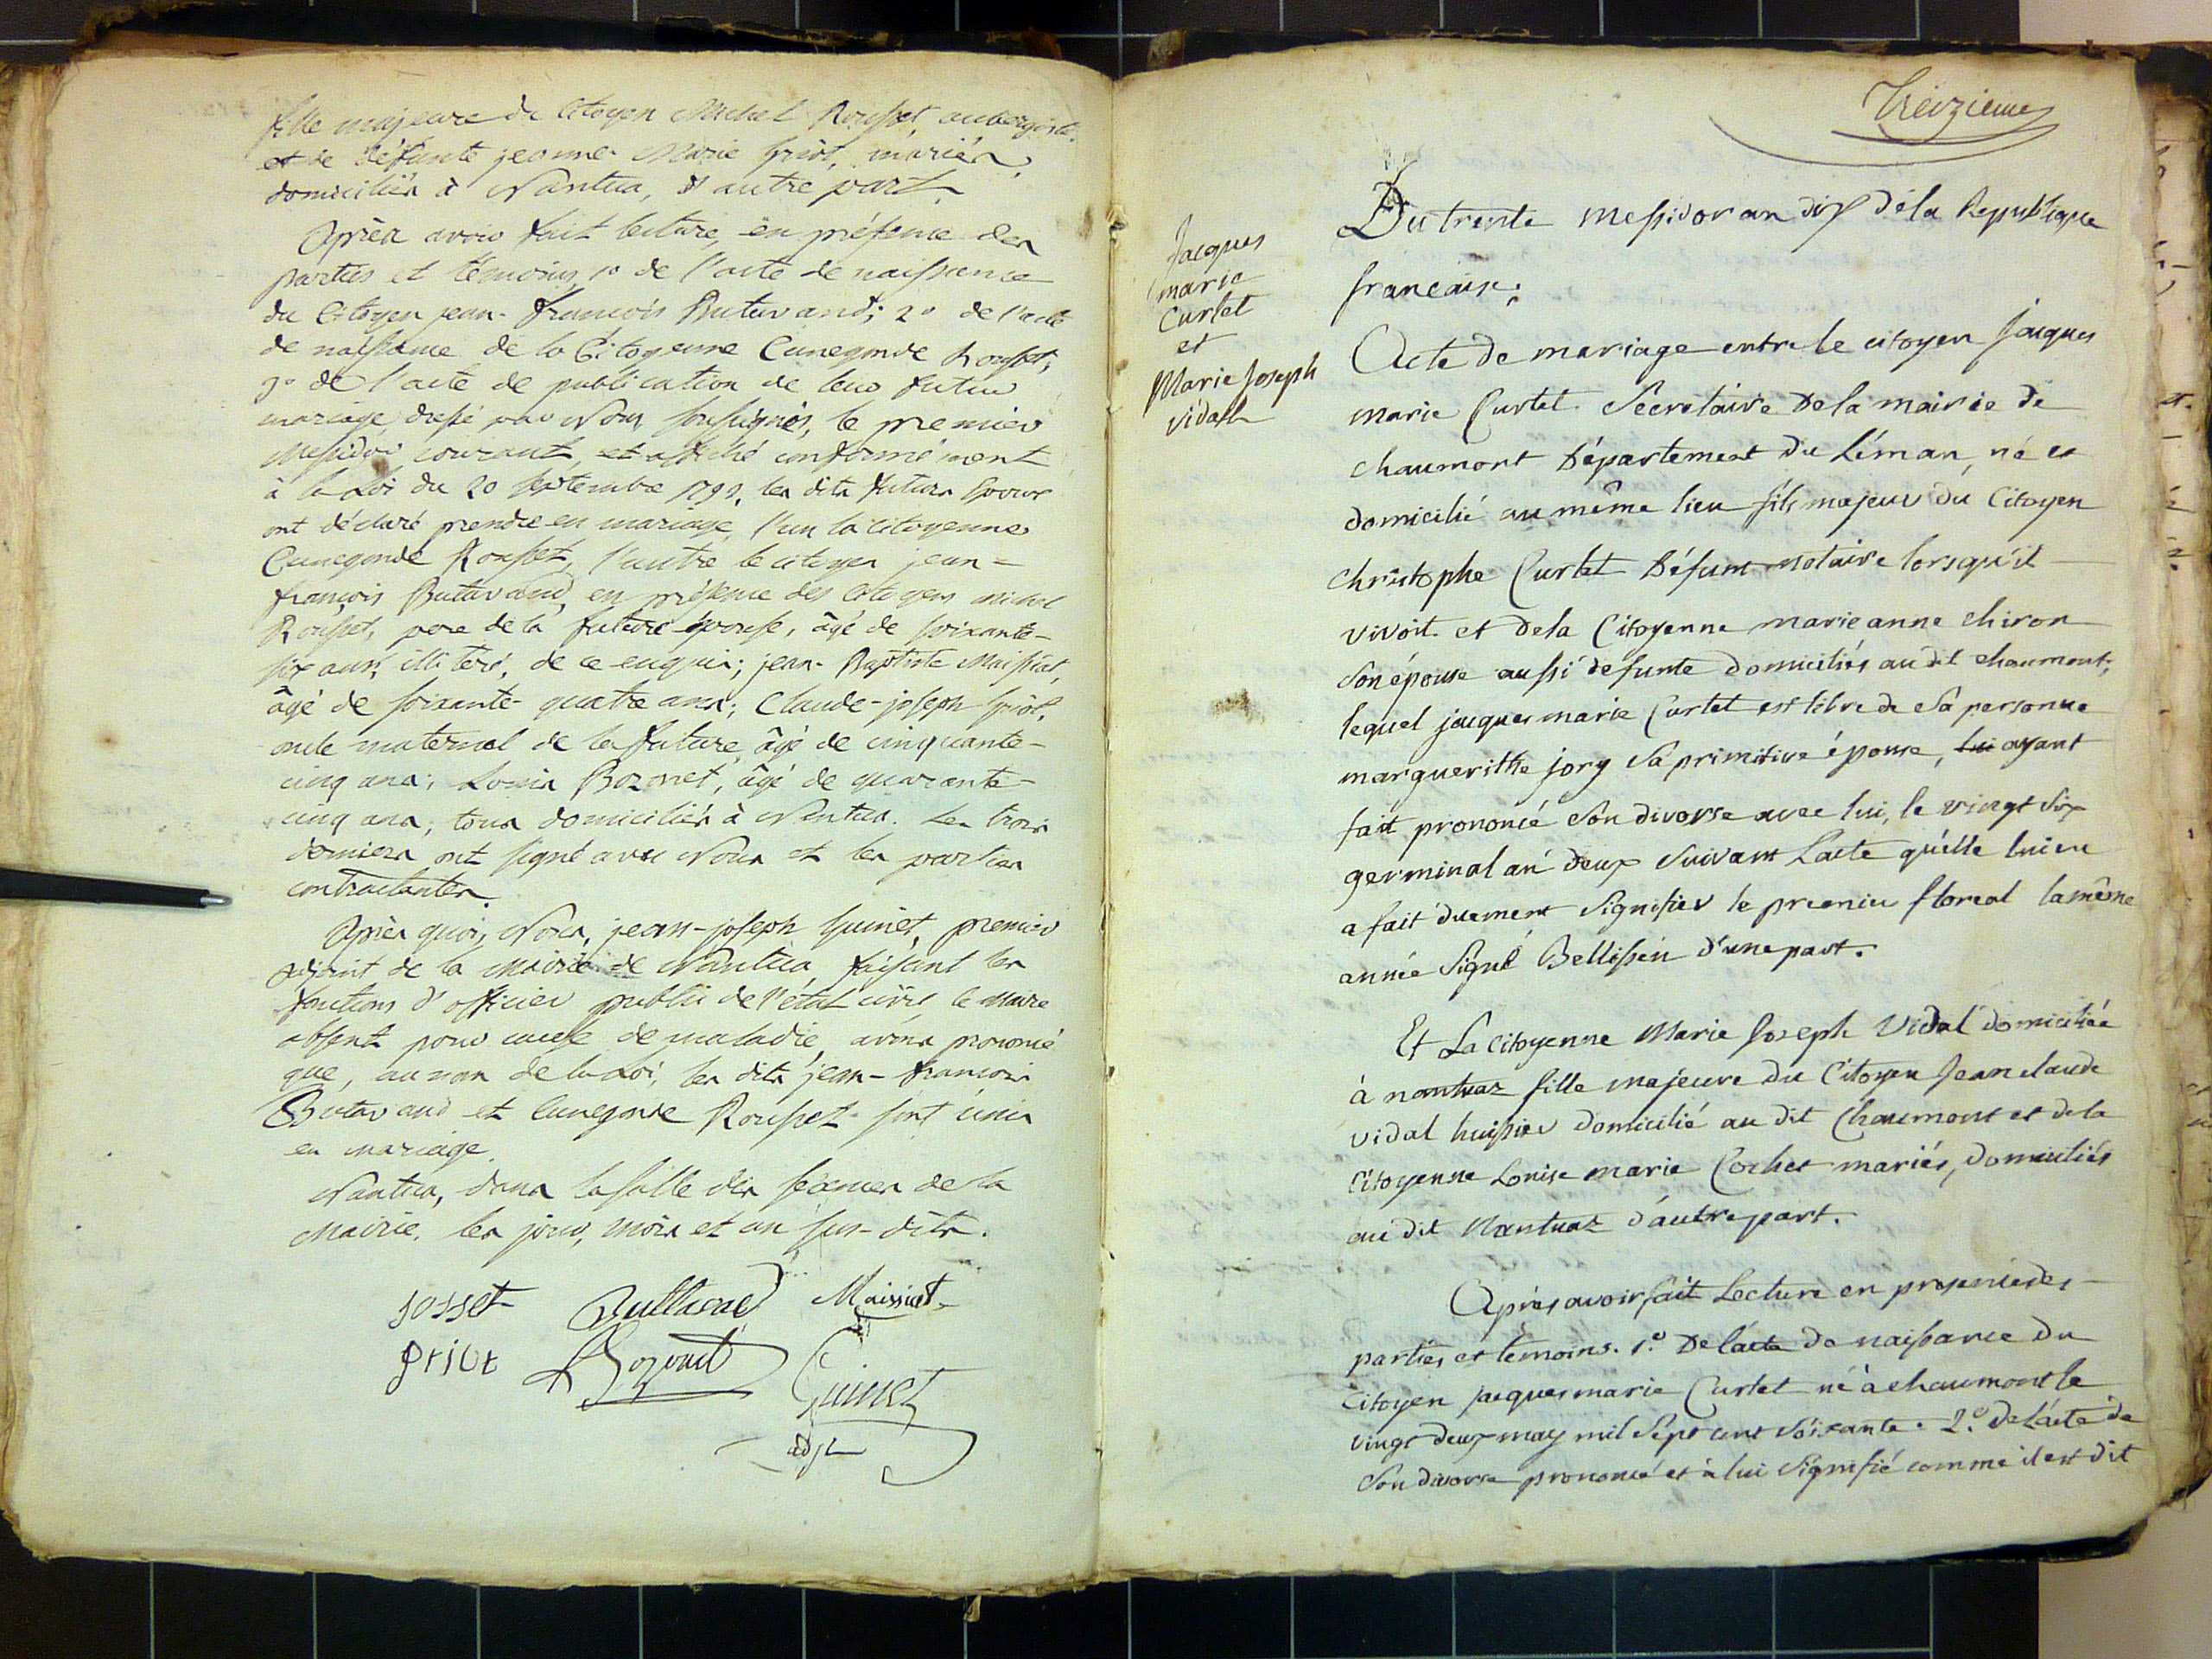 fille majeure du Citoyen Michel Rousset, aubergiste
et de défunte jeanne Marie griot, mariés,
domiciliés à Nantua, d'autre part.
Après avoir fait lecture, en présence des
parties et témoins, 1º de l'acte de naissance
du Citoyen jean-françois Butavand; 2º de l'acte
de naissance de la Citoyenne Cunegonde Rousset;
3º de l'acte de publication de leur futur
mariage, dressé par Nous soussignés, le premier
Messidor courant, et affiché conformément
à la Loi du 20 septembre 1792, les dits futurs époux
ont déclaré prendre en mariage, l'un la citoyenne
Cunegonde Rousset, l'autre le citoyen jean-
françois Butavand, en présence des citoyens michel
Rousset, pere de la future épouse, âgé de soixante-
six ans, illiteré, de ce enquis; jean-Baptiste Maissiat,
âgé de soixante-quatre ans; Claude-joseph griot,
oncle maternel de la future, âgé de cinquante-
cinq ans; Louis Bozonet, âgé de quarante-
cinq ans; tous domiciliés à Nantua. Les trois
derniers ont signé avec Nous et les parties
contractantes.
Après quoi, Nous, jean-joseph Guinet, premier
adjoint de la Mairie de Nantua, faisant les
fonctions d'officier public de l'état civil, le Maire
absent pour cause de maladie, avons prononcé
que, au nom de la Loi, les dits jean-françois
Butavand et Cunegonde Rousset sont unis
en mariage.
Nantua, dans la salle des séances de la
Mairie, les jour, mois et an sus-dits.
Maissiat
griot Bozonet
Guinet
adjt
Treizieme
Jacques
marie
Curtet
et
Marie Joseph
vidal
Du trente messidor an dix de la Republique
francaise;
Acte de mariage entre le citoyen Jacques
marie Curtet Secretaire de la mairie de
chaumont Département du Léman, né et
domicilié au même lieu fils majeur du Citoyen
christophe Curtet Défunt notaire lorsqu'il
vivoit et de la Citoyenne marie anne chiron
Son épouse aussi défunte domiciliés au dit chaumont;
lequel jacques marie Curtet est libre de Sa personne
marguerithe jory Sa primitive épouse, lui ayant
fait prononcé Son divorse avec lui, le vingt Six
germinal an deux Suivant Lacte qu'elle lui en
a fait duement Signifier le premier floreal la même
année Signé Bellissen d'une part.
Et La citoyenne Marie Joseph Vidal domiciliée
à nantuaz fille majeure du Citoyen Jean claude
vidal huissier domicilié au dit Chaumont et de la
Citoyenne Louise marie Cochet mariés, domiciliés
au dit Nantuaz d'autre part.
Après avoir fait Lecture en presence des
parties et temoins. 1.º De l'acte de naissance du
citoyen jacques marie Curtet né à chaumont le
vingt deux may mil Sept cent Soixante. 2.º De L'acte de
Son divorse prononcé et à lui Signifié comme il est dit